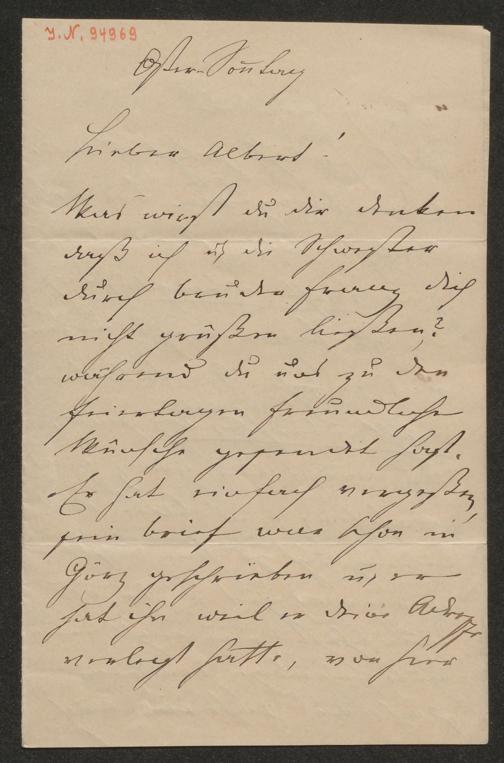 J. N. 94969
Oster-Sonntag
Lieber Albert!
Was wirst du dir denken
daß ich u. die Schwester
durch bruder Franz dich
nicht grüßen ließen?
während du uns zu den
feiertagen freundliche
Wünsche gesendet hast.
Er hat einfach vergeßen,
sein brief war schon in
Görz geschrieben u. er
hat ihn weil er deine Adresse
verlegt hatte, von hier